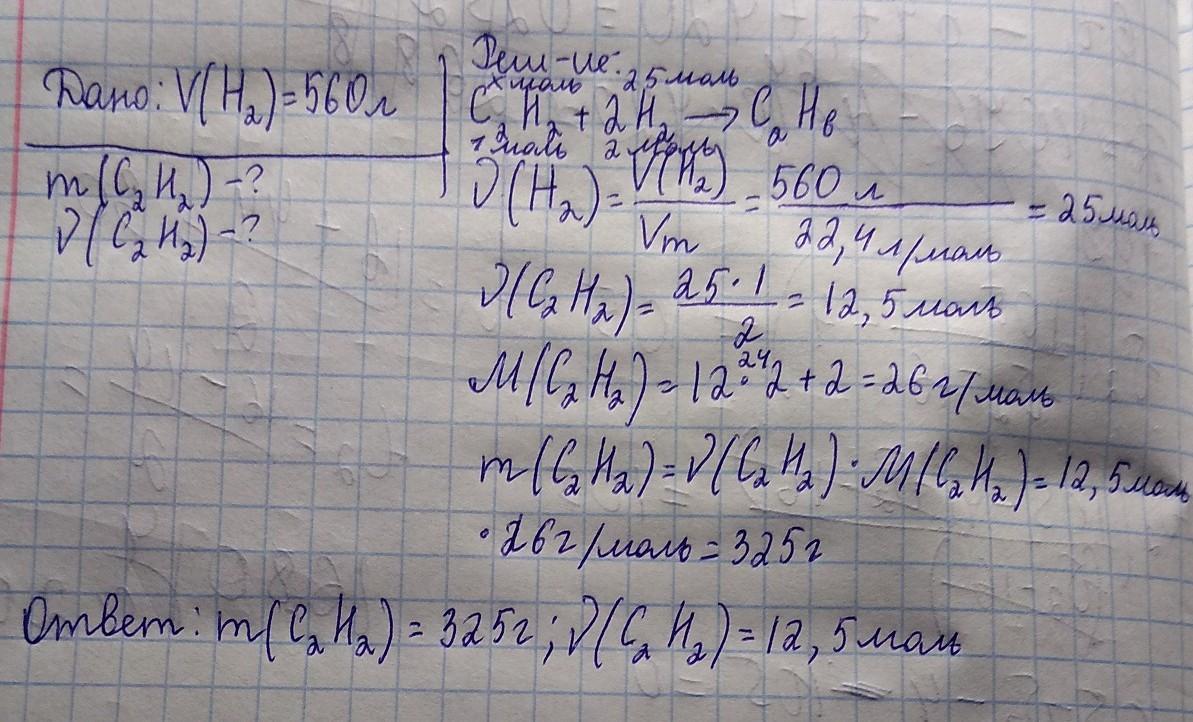 Дано: V(H₂)=560л
m(C₂H₂)-?
ν(C₂H₂)-?
Реш-ие:
x моль 25 моль
C₂H₂ + 2H₂ → C₂H₆
1 моль 2 моль
ν(H₂) = V(H₂)/Vm = 560 л/22,4 л/моль = 25 моль
ν(C₂H₂) = 25·1/2 = 12,5 моль
24
M(C₂H₂) = 12·2 + 2 = 26 г/моль
m(C₂H₂) = ν(C₂H₂)·M(C₂H₂) = 12,5 моль
·26 г/моль = 325 г
Ответ: m(C₂H₂) = 325 г; ν(C₂H₂) = 12,5 моль